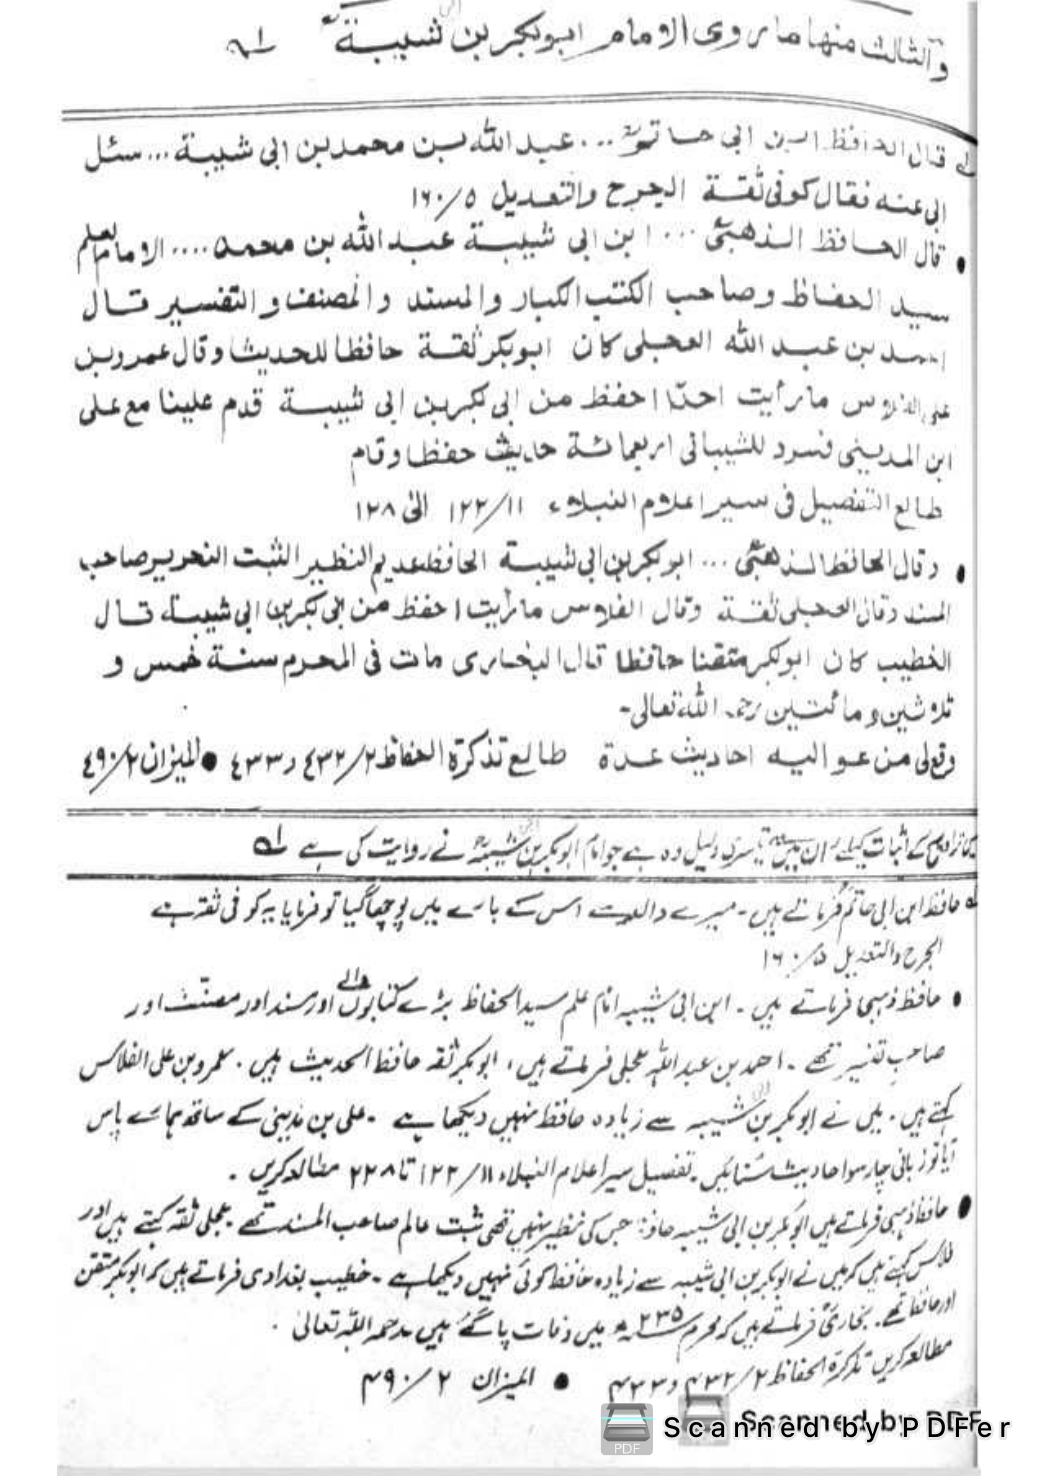 والثالث منها ما روى الامام ابوبكر بن ابی شيبة ؒ لہ
لہ قال الحافظ ابن ابى حاتم ؒ ... عبد الله بن محمد بن ابى شيبة ... سئل
ابى عنه فقال كوفى ثقة الجرح والتعديل ١٦٠/٥
• قال الحافظ الذهبىؒ ... ابن ابى شيبة عبد الله بن محمد .... الامام العلم
سيد الحفاظ وصاحب الكتب الكبار والمسند والمصنف و التفسير قال
احمد بن عبد الله العجلى كان ابوبكر ثقة حافظا للحديث وقال عمرو بن
على الفلاس ما رأيت احدًا احفظ من ابى بكر بن ابى شيبة قدم علينا مع على
ابن المدينى فسرد للشيبانى اربعمائة حديث حفظا وقام
طالع التفصيل فى سير اعلام النبلاء ١٢٢/١١ الى ١٢٨
• وقال الحافظ الذهبىؒ ... ابوبكر بن ابى شيبة الحافظ عديم النظير الثبت النحرير صاحب
المسند وقال العجلى ثقة وقال الفلاس ما رأيت احفظ من ابى بكر بن ابى شيبة قال
الخطيب كان ابوبكر متقنا حافظا قال البخارى مات فى المحرم سنة خمس و
ثلاثين و مائتين رحمہ الله تعالى۔
وقع لى من عواليه احاديث عدة طالع تذكرة الحفاظ ٤٣٢/٢ و ٤٣٣ • الميزان ٤٩٠/٢
تراویح کے اثبات کیلئے ان میں سے تیسری دلیل وہ ہے جو امام ابوبکر بن ابی شیبہؒ نے روایت کی ہے لہ
لہ حافظ ابن ابی حاتمؒ فرماتے ہیں۔ میرے والد سے اس کے بارے میں پوچھا گیا تو فرمایا یہ کوفی ثقہ ہے
الجرح والتعدیل ۵/۱۶۰
• حافظ ذہبی فرماتے ہیں۔ ابن ابی شیبہ امام علم سید الحفاظ بڑے کتابوں والے اور مسند اور مصنف اور
صاحب تفسیر تھے۔ احمد بن عبداللہ عجلی فرماتے ہیں، ابوبکر ثقہ حافظ الحدیث ہیں۔ عمرو بن علی الفلاس
کہتے ہیں۔ میں نے ابوبکر بن ابی شیبہ سے زیادہ حافظ نہیں دیکھا ہے ۔ علی بن مدینی کے ساتھ ہمارے پاس
آیا تو زبانی چار سو احادیث سنائیں۔ تفصیل سیر اعلام النبلاء ۱۱/۱۲۲ تا ۲۲۸ مطالعہ کریں ۔
• حافظ ذہبی فرماتے ہیں ابوبکر بن ابی شیبہ حافظ جس کی نظیر نہیں تھی ثبت عالم صاحب المسند تھے عجلی ثقہ کہتے ہیں اور
فلاس کہتے ہیں کہ میں نے ابوبکر بن ابی شیبہ سے زیادہ حافظ کوئی نہیں دیکھا ہے۔ خطیب بغدادی فرماتے ہیں کہ ابوبکر متقن
اور حافظ تھے۔ بخاریؒ فرماتے ہیں کہ محرم ۲۳۵ھ میں وفات پا گئے ہیں رحمہ اللہ تعالیٰ ۔
مطالعہ کریں تذکرۃ الحفاظ ۲/۴۳۲ و ۴۳۳ • المیزان ۲/۴۹۰
PDF
Scanned by PDFer
Scanned by PDF